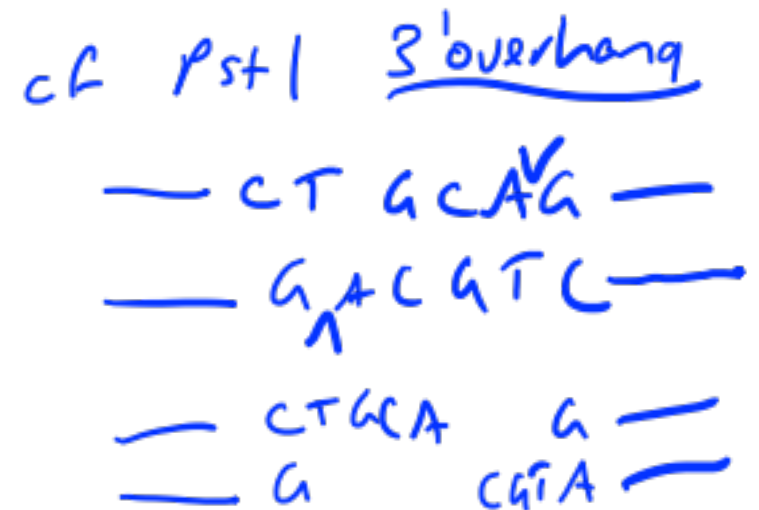 cf Pst1 3'overhang
— CT GCA∨G —
— G∧ACGTC —
— CTGCA G —
— G CGTA —